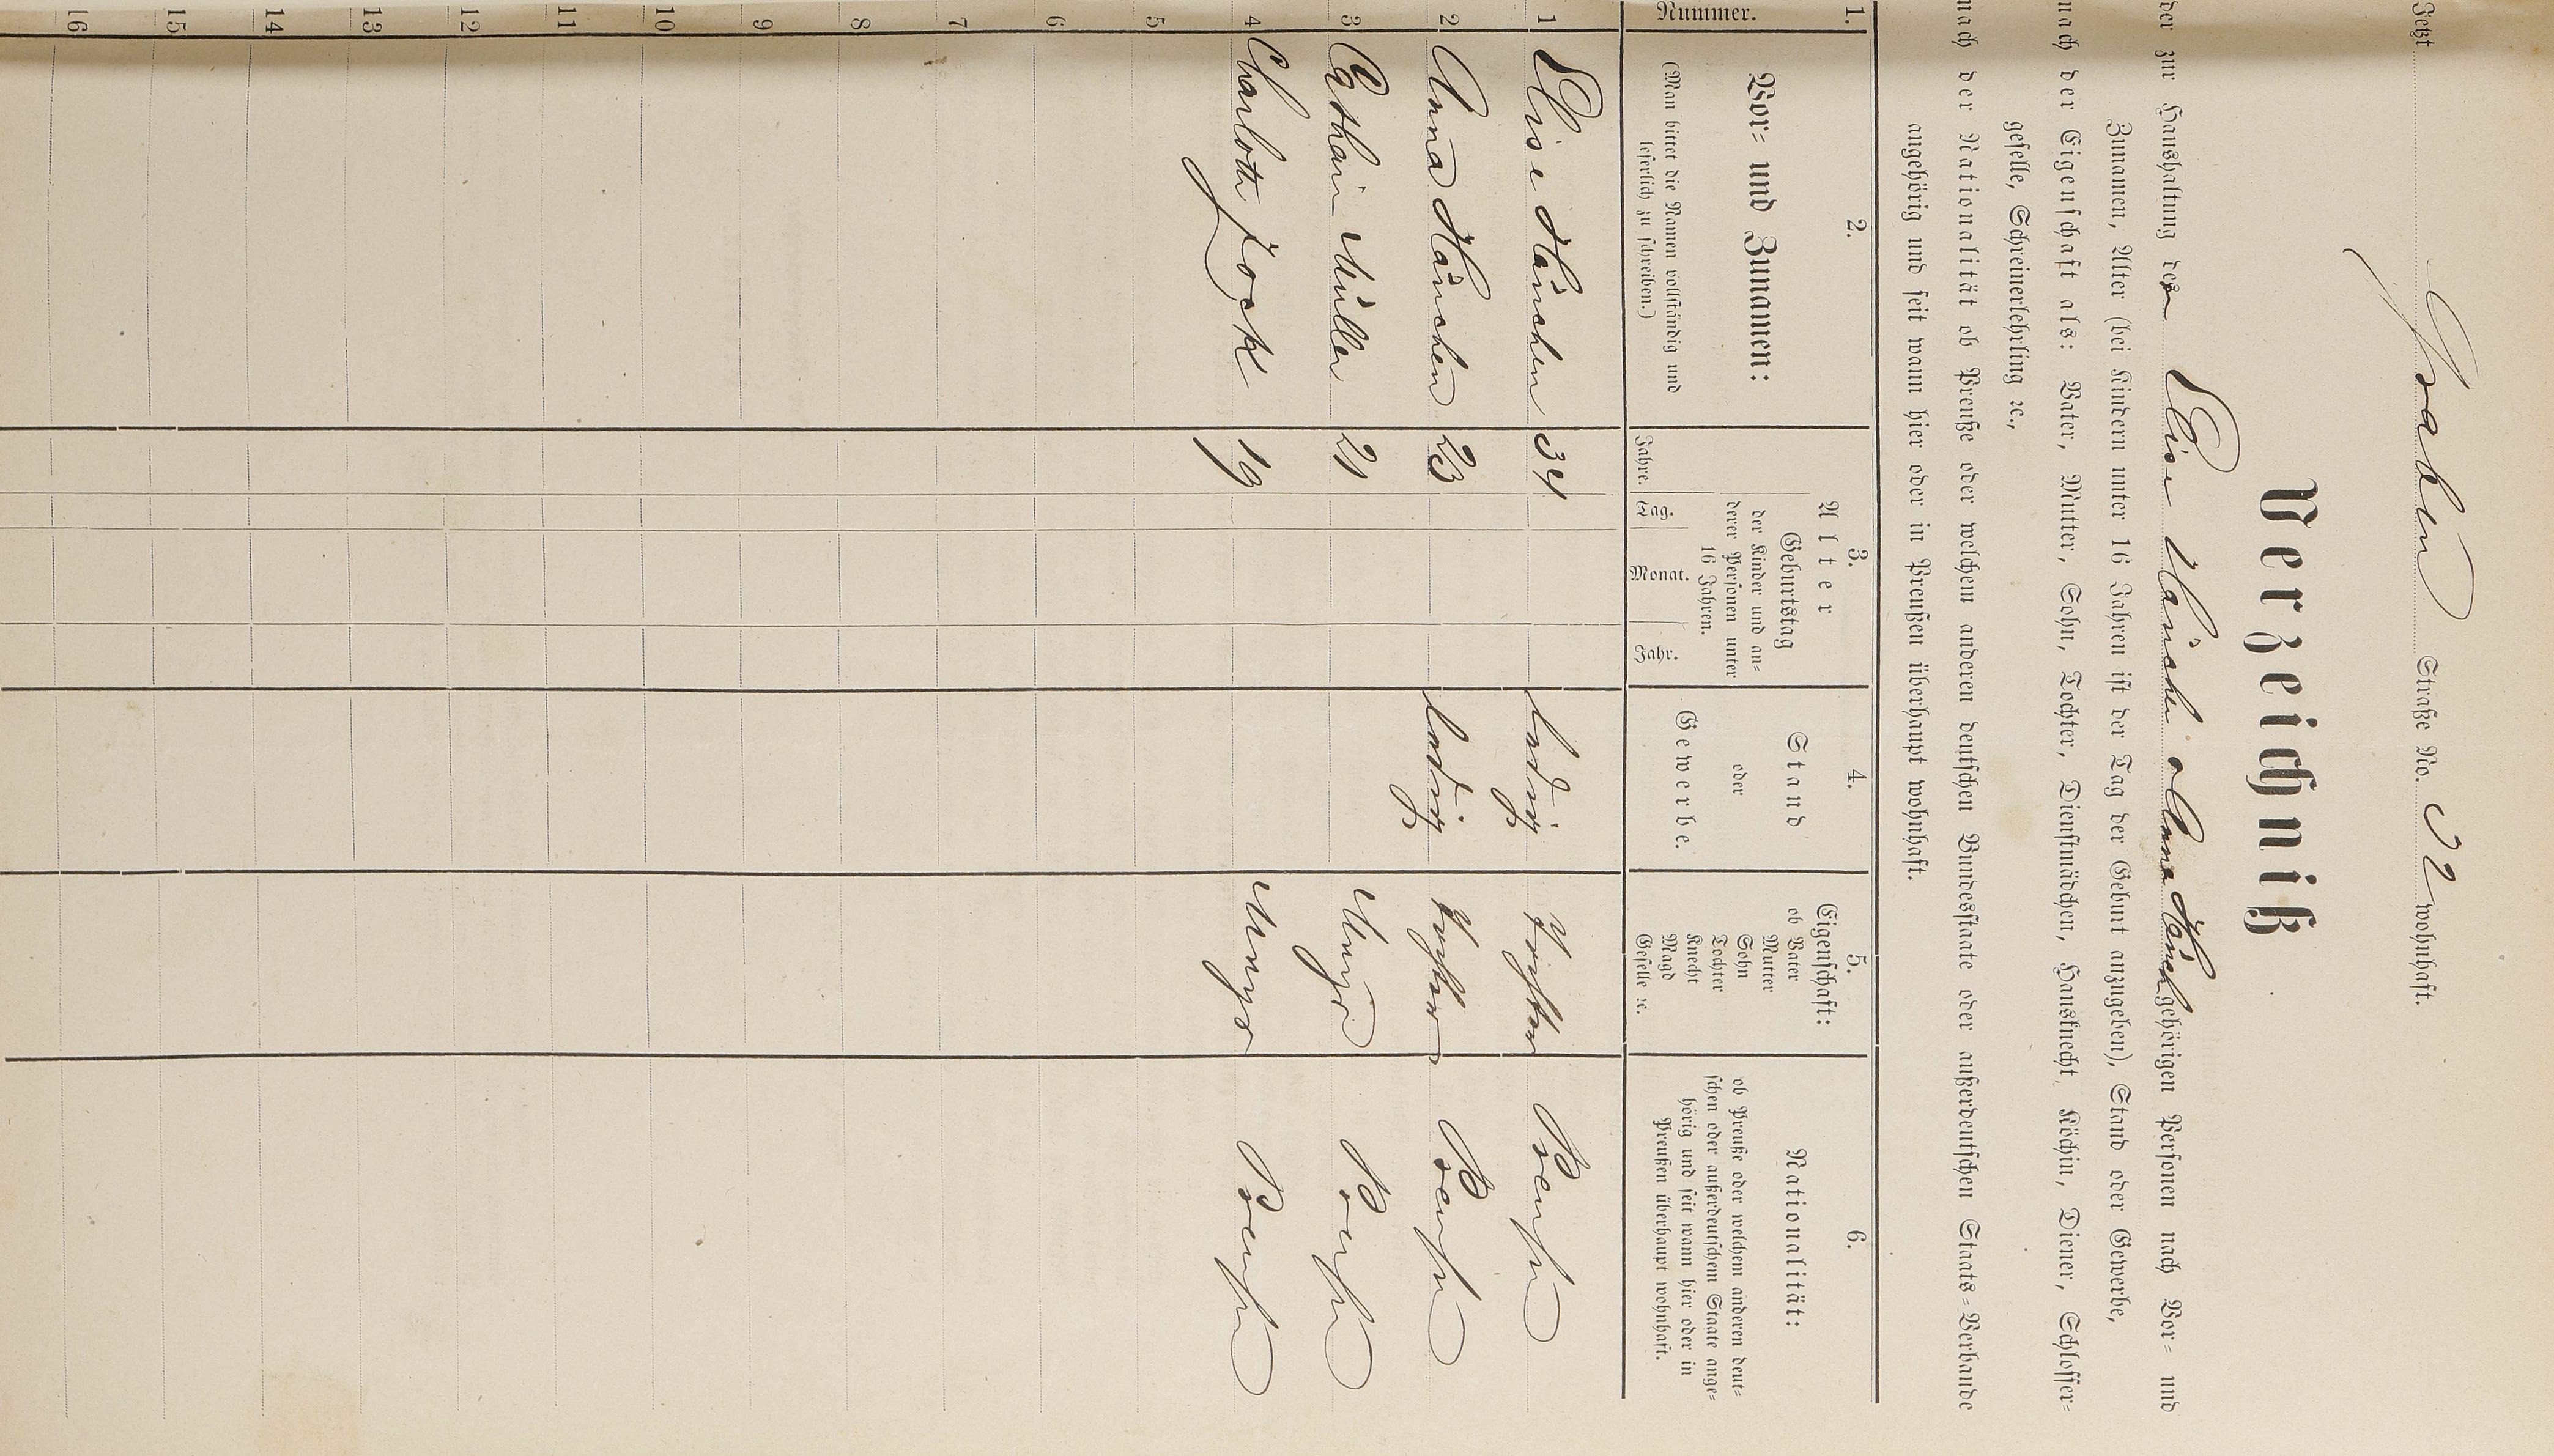 Jetzt Graben Straße No. 32 wohnhaft.
Verzeichniß
der zur Haushaltung der Elise Hänchen Anna Hänch gehörigen Personen nach Vor= und
Zunamen, Alter (bei Kindern unter 16 Jahren ist der Tag der Geburt anzugeben), Stand oder Gewerbe,
nach der Eigenschaft als: Vater, Mutter, Sohn, Tochter, Dienstmädchen, Hausknecht, Köchin, Diener, Schlosser=
geselle, Schreinerlehrling ꝛc.,
nach der Nationalität ob Preuße oder welchem anderen deutschen Bundesstaate oder außerdeutschen Staats=Verbande
angehörig und seit wann hier oder in Preußen überhaupt wohnhaft.
1. 2. 3. 4. 5. 6.
Nummer.
Vor= und Zunamen:
(Man bittet die Namen vollständig und
leserlich zu schreiben.)
Alter
Geburtstag
der Kinder und an=
derer Personen unter
16 Jahren.
Jahre. Tag. Monat. Jahr.
Stand
oder
Gewerbe.
Eigenschaft:
ob Vater
Mutter
Sohn
Tochter
Knecht
Magd
Geselle ꝛc.
Nationalität:
ob Preuße oder welchem anderen deut=
schen oder außerdeutschem Staate ange=
hörig und seit wann hier oder in
Preußen überhaupt wohnhaft.
1 Elise Hänchen 34 ledig Tochter Preuße
2 Anna Hänchen 23 ledig Tochter Preuße
3 Cathari Müller 21 Magd Preuße
4 Charlotte Jock 19 Magd Preuße
5
6
7
8
9
10
11
12
13
14
15
16